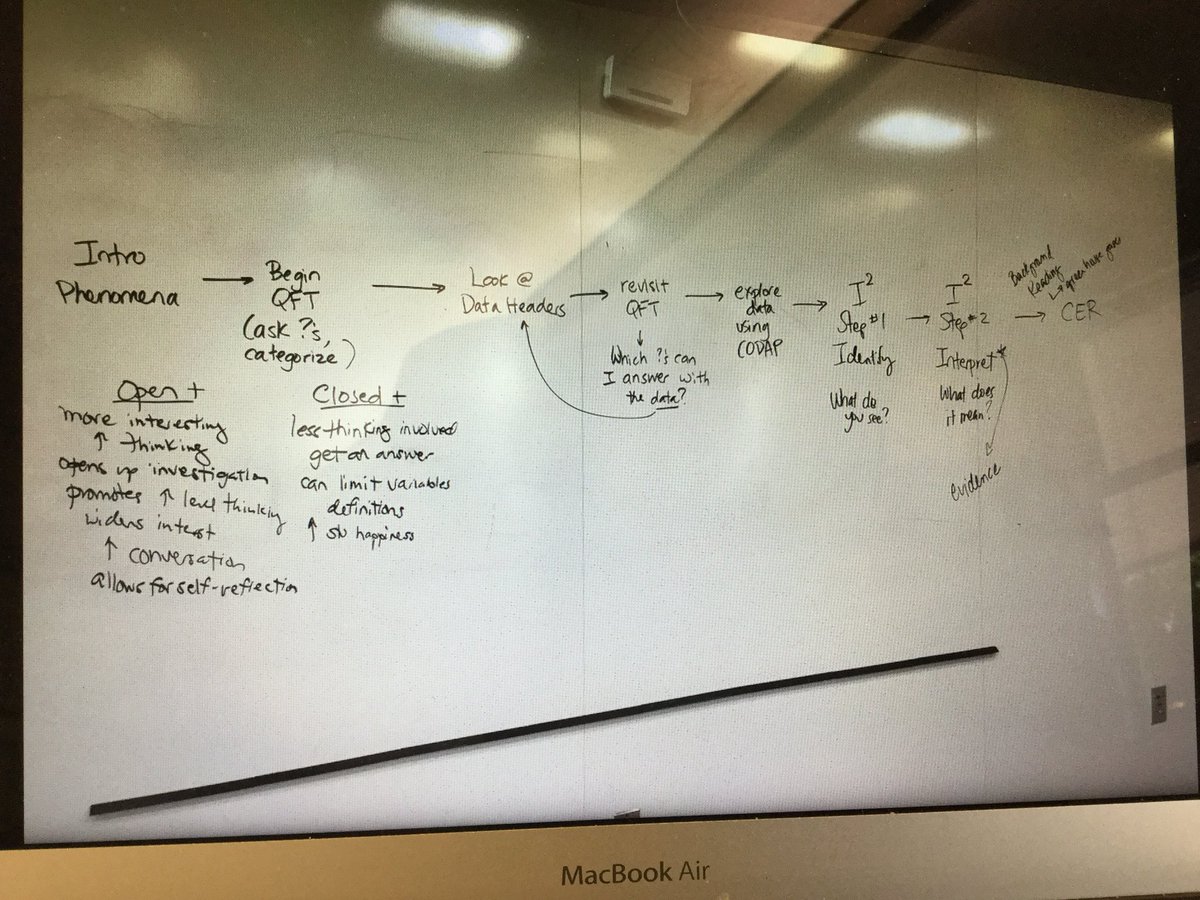 Intro
Phenomena
Begin
QFT
(ask ?'s,
categorize)
Look @
Data Headers
revisit
QFT
Which ?'s can
I answer with
the data?
explore
data
using
CODAP
I²
Step #1
Identify
What do
you see?
I²
Step #2
Interpret*
What does
it mean?
evidence
Background
Reading
CER
Open +
more interesting
↑ thinking
opens up investigation
promotes ↑ level thinking
widens interst
↑ conversation
allows for self-reflection
Closed +
less thinking involved
get an answer
can limit variables
definitions
↑ stu happiness
MacBook Air